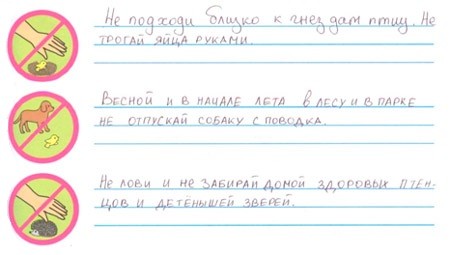 Не подходи близко к гнездам птиц. Не
трогай яйца руками.
Весной и в начале лета в лесу и в парке
не отпускай собаку с поводка.
Не лови и не забирай домой здоровых птен-
цов и детёнышей зверей.